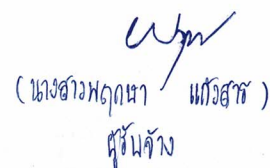 (นางสาวพฤกษา แก้วสาร)
ผู้รับจ้าง